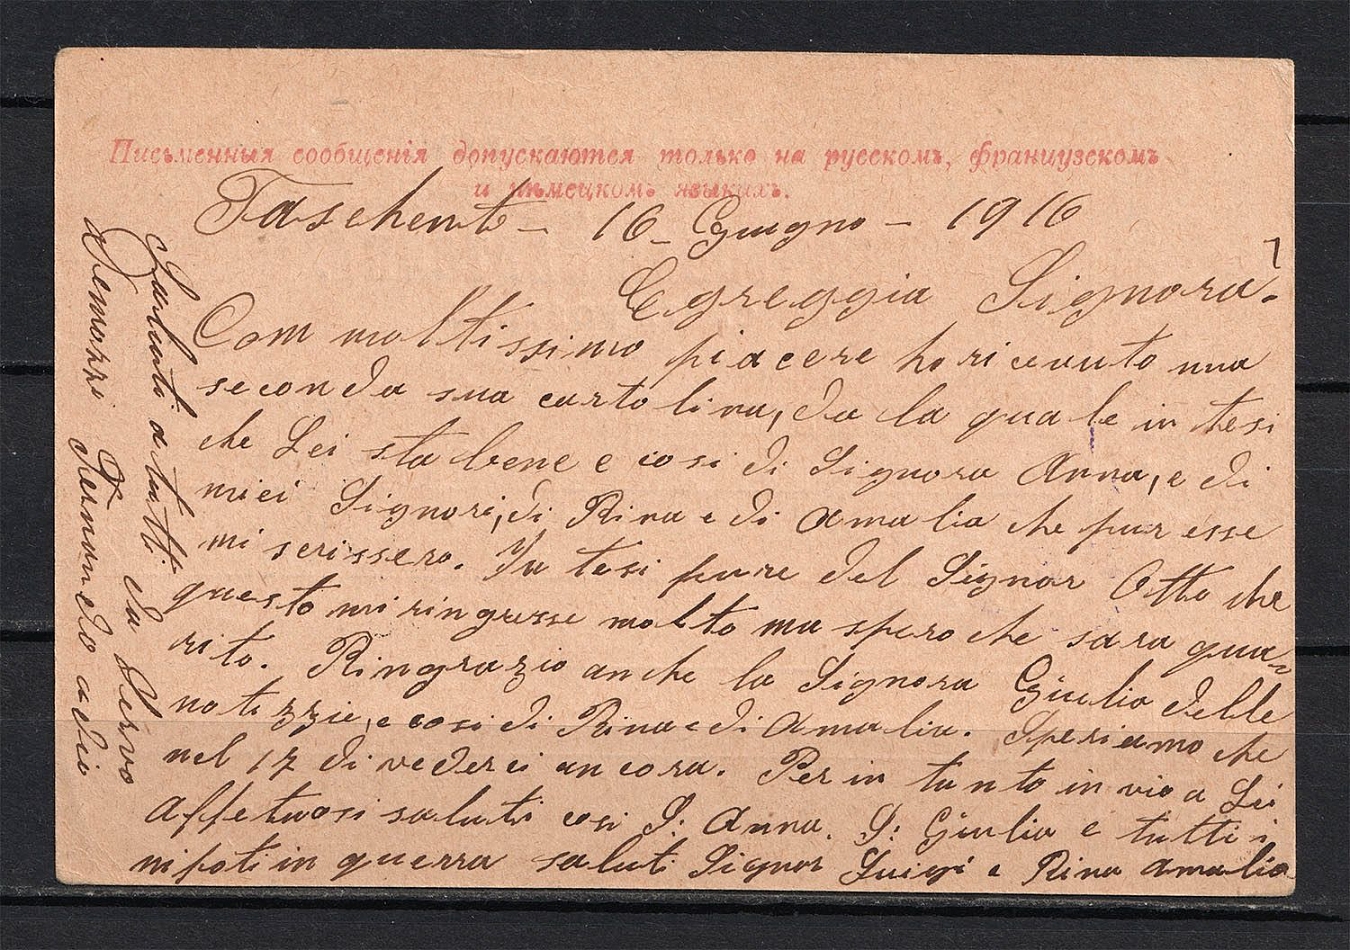 Письменныя сообщенія допускаются только на русскомъ, французскомъ
и нѣмецкомъ языкахъ.
Taschent - 16 - Giugno - 1916
Egreggia Signora.
Com moltissimo piacere ho ricevuto una
seconda sua cartolina, da la quale in tesi
che Lei sta bene e cosi di Signora Anna, e di
miei Signori, di Rina e di Amalia che pur esse
mi scrissero. In tesi pure del Signor Otto che
questo mi ringresse molto ma spero che sara qua=
rito. Ringrazio anche la Signora Giulia delle
notizzie, e cosi di Rina e di Amalia. Speriamo che
nel 17 di vederci ancora. Per in tanto in vio a Lei
affetuosi saluti cosi S: Anna. S: Giulia e tutti i
nipoti in guerra saluti Signor Luigi e Rina Amalia
Saluti a tutti da Servo
Fernando adio